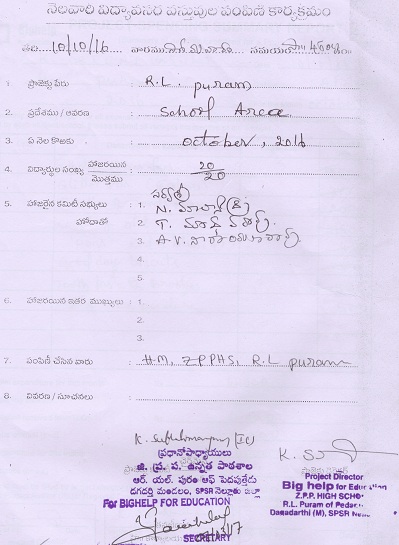 నెలవారి విద్యావసర వస్తువుల పంపిణి కార్యక్రమం
తేది 10/10/16 వారము సమయం
1. ప్రాజెక్టు పేరు : R.L. puram
2. ప్రదేశము / ఆవరణ : School Area
3. ఏ నెల కొఱకు : october, 2016
4. విద్యార్థుల సంఖ్య హాజరయిన 20
మొత్తము 20
5. హాజరైన కమిటీ సభ్యులు : 1. N.
హోదాతో 2. T.
3. A.V.
4.
5.
6. హాజరయిన ఇతర ముఖ్యులు : 1.
2.
3.
7. పంపిణీ చేసిన వారు : H.M, Z.P.P.H.S, R.L puram
8. వివరణ / సూచనలు :
ప్రధానోపాధ్యాయులు
జి. ప్ర. ప. ఉన్నత పాఠశాల
ఆర్. యల్. పురం ఆఫ్ పెదపుత్తేడు
దగదర్తి మండలం, SPSR నెల్లూరు జిల్లా
For BIGHELP FOR EDUCATION
SECRETARY
Project Director
Big help for Education
Z.P.P. HIGH SCHO
R.L. Puram of Pedap
Dagadarthi (M), SPSR Ne